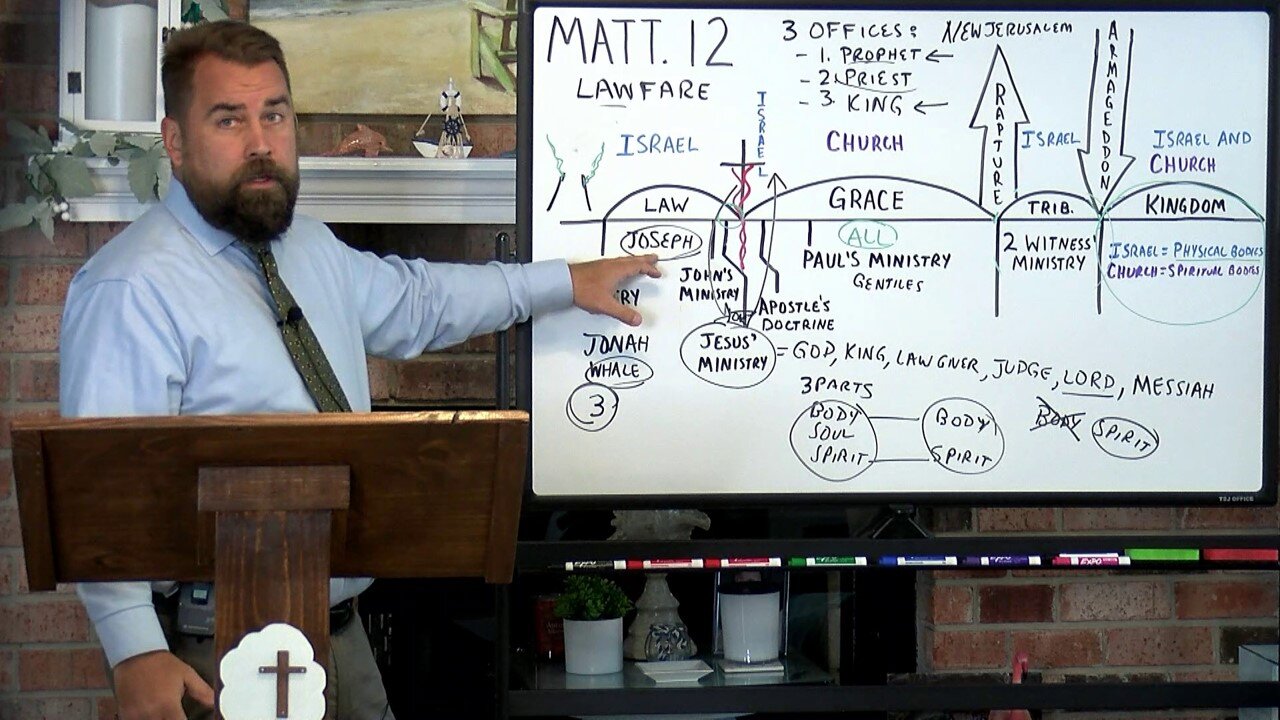 MATT. 12
LAWFARE
3 OFFICES:
- 1. PROPHET ←
- 2. PRIEST
- 3. KING ←
NEW JERUSALEM
ARMAGEDDON
RAPTURE
ISRAEL
ISRAEL
CHURCH
ISRAEL
ISRAEL AND
CHURCH
LAW
GRACE
TRIB.
KINGDOM
JOSEPH
ALL
PAUL'S MINISTRY
GENTILES
2 WITNESS'
MINISTRY
ISRAEL = PHYSICAL BODIES
CHURCH = SPIRITUAL BODIES
JOHN'S
MINISTRY
RY
APOSTLE'S
DOCTRINE
JONAH
WHALE
3
JESUS'
MINISTRY
= GOD, KING, LAWGIVER, JUDGE, LORD, MESSIAH
3 PARTS
BODY
SOUL
SPIRIT
BODY
SPIRIT
BODY
SPIRIT
TSJ OFFICE
EXPO